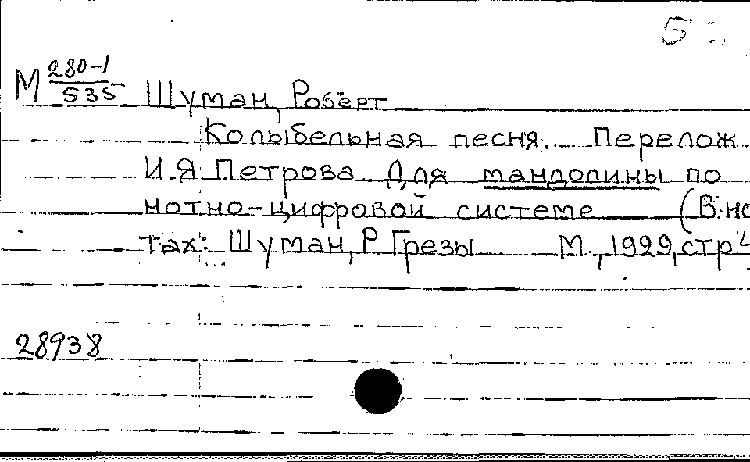 5
М 280-1/535 Шуман, Роберт
Колыбельная песня. Перелож
И.Я Петрова Для мандолины по
нотно-цифровой системе (В но
тах: Шуман, Р Грезы М., 1929, стр
28938